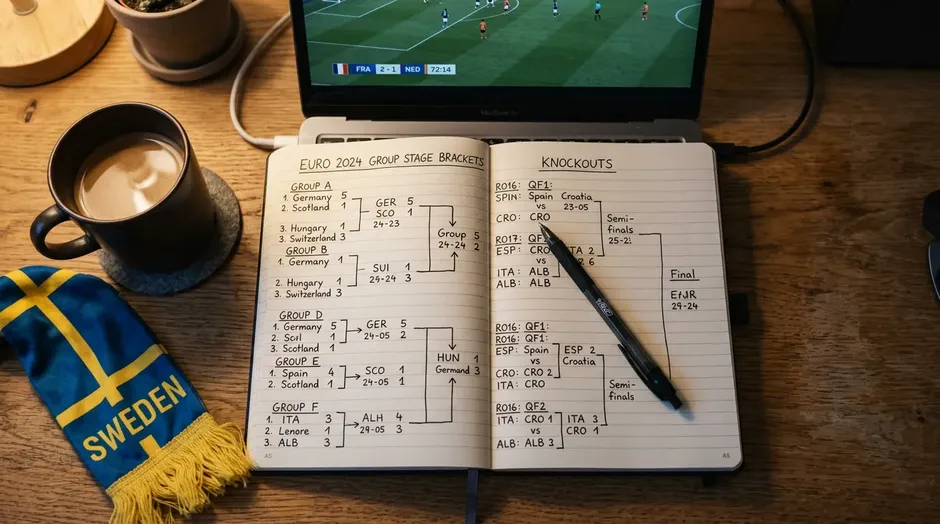 FRA 2-1 NED 72:14
EURO 2024 GROUP STAGE BRACKETS
GROUP A
1. Germany 5
2. Scotland 1
3. Hungary 1
3. Switzerland 3
GER 5
SCO 1
24-23
GROUP B
1. Germany 1
2. Hungary 1
3. Switzerland 3
SUI 1
25-24 3
Group 5
24-24 2
GROUP D
1. Germany 5
2. Scil 1
3. Scotland 1
GER 5
24-05 2
GROUP E
1. Spain 4
2. Scotland 1
SCO 1
24-05 1
HUN 1
Germand 3
GROUP F
1. ITA 3
2. Lenore 1
3. ALB 3
ALH 4
29-05 3
A5
KNOCKOUTS
RO16: QF1:
SPIN: Spain Croatia
vs 23-05
CRO: CRO
Semi-
finals
RO17: QF1
ESP: CRO ITA 2
ITA: ALB
ALB: ALB
Final
29-24
RO16: QF1:
RO16: QF1:
ESP: Spain ESP 2
vs Croatia
CRO: CRO 2
ITA: CRO
Semi-
finals
RO16: QF2
ITA: CRO 1 ITA 3
vs CRO 1
ALB: ALB 3
A5
SWEDEN